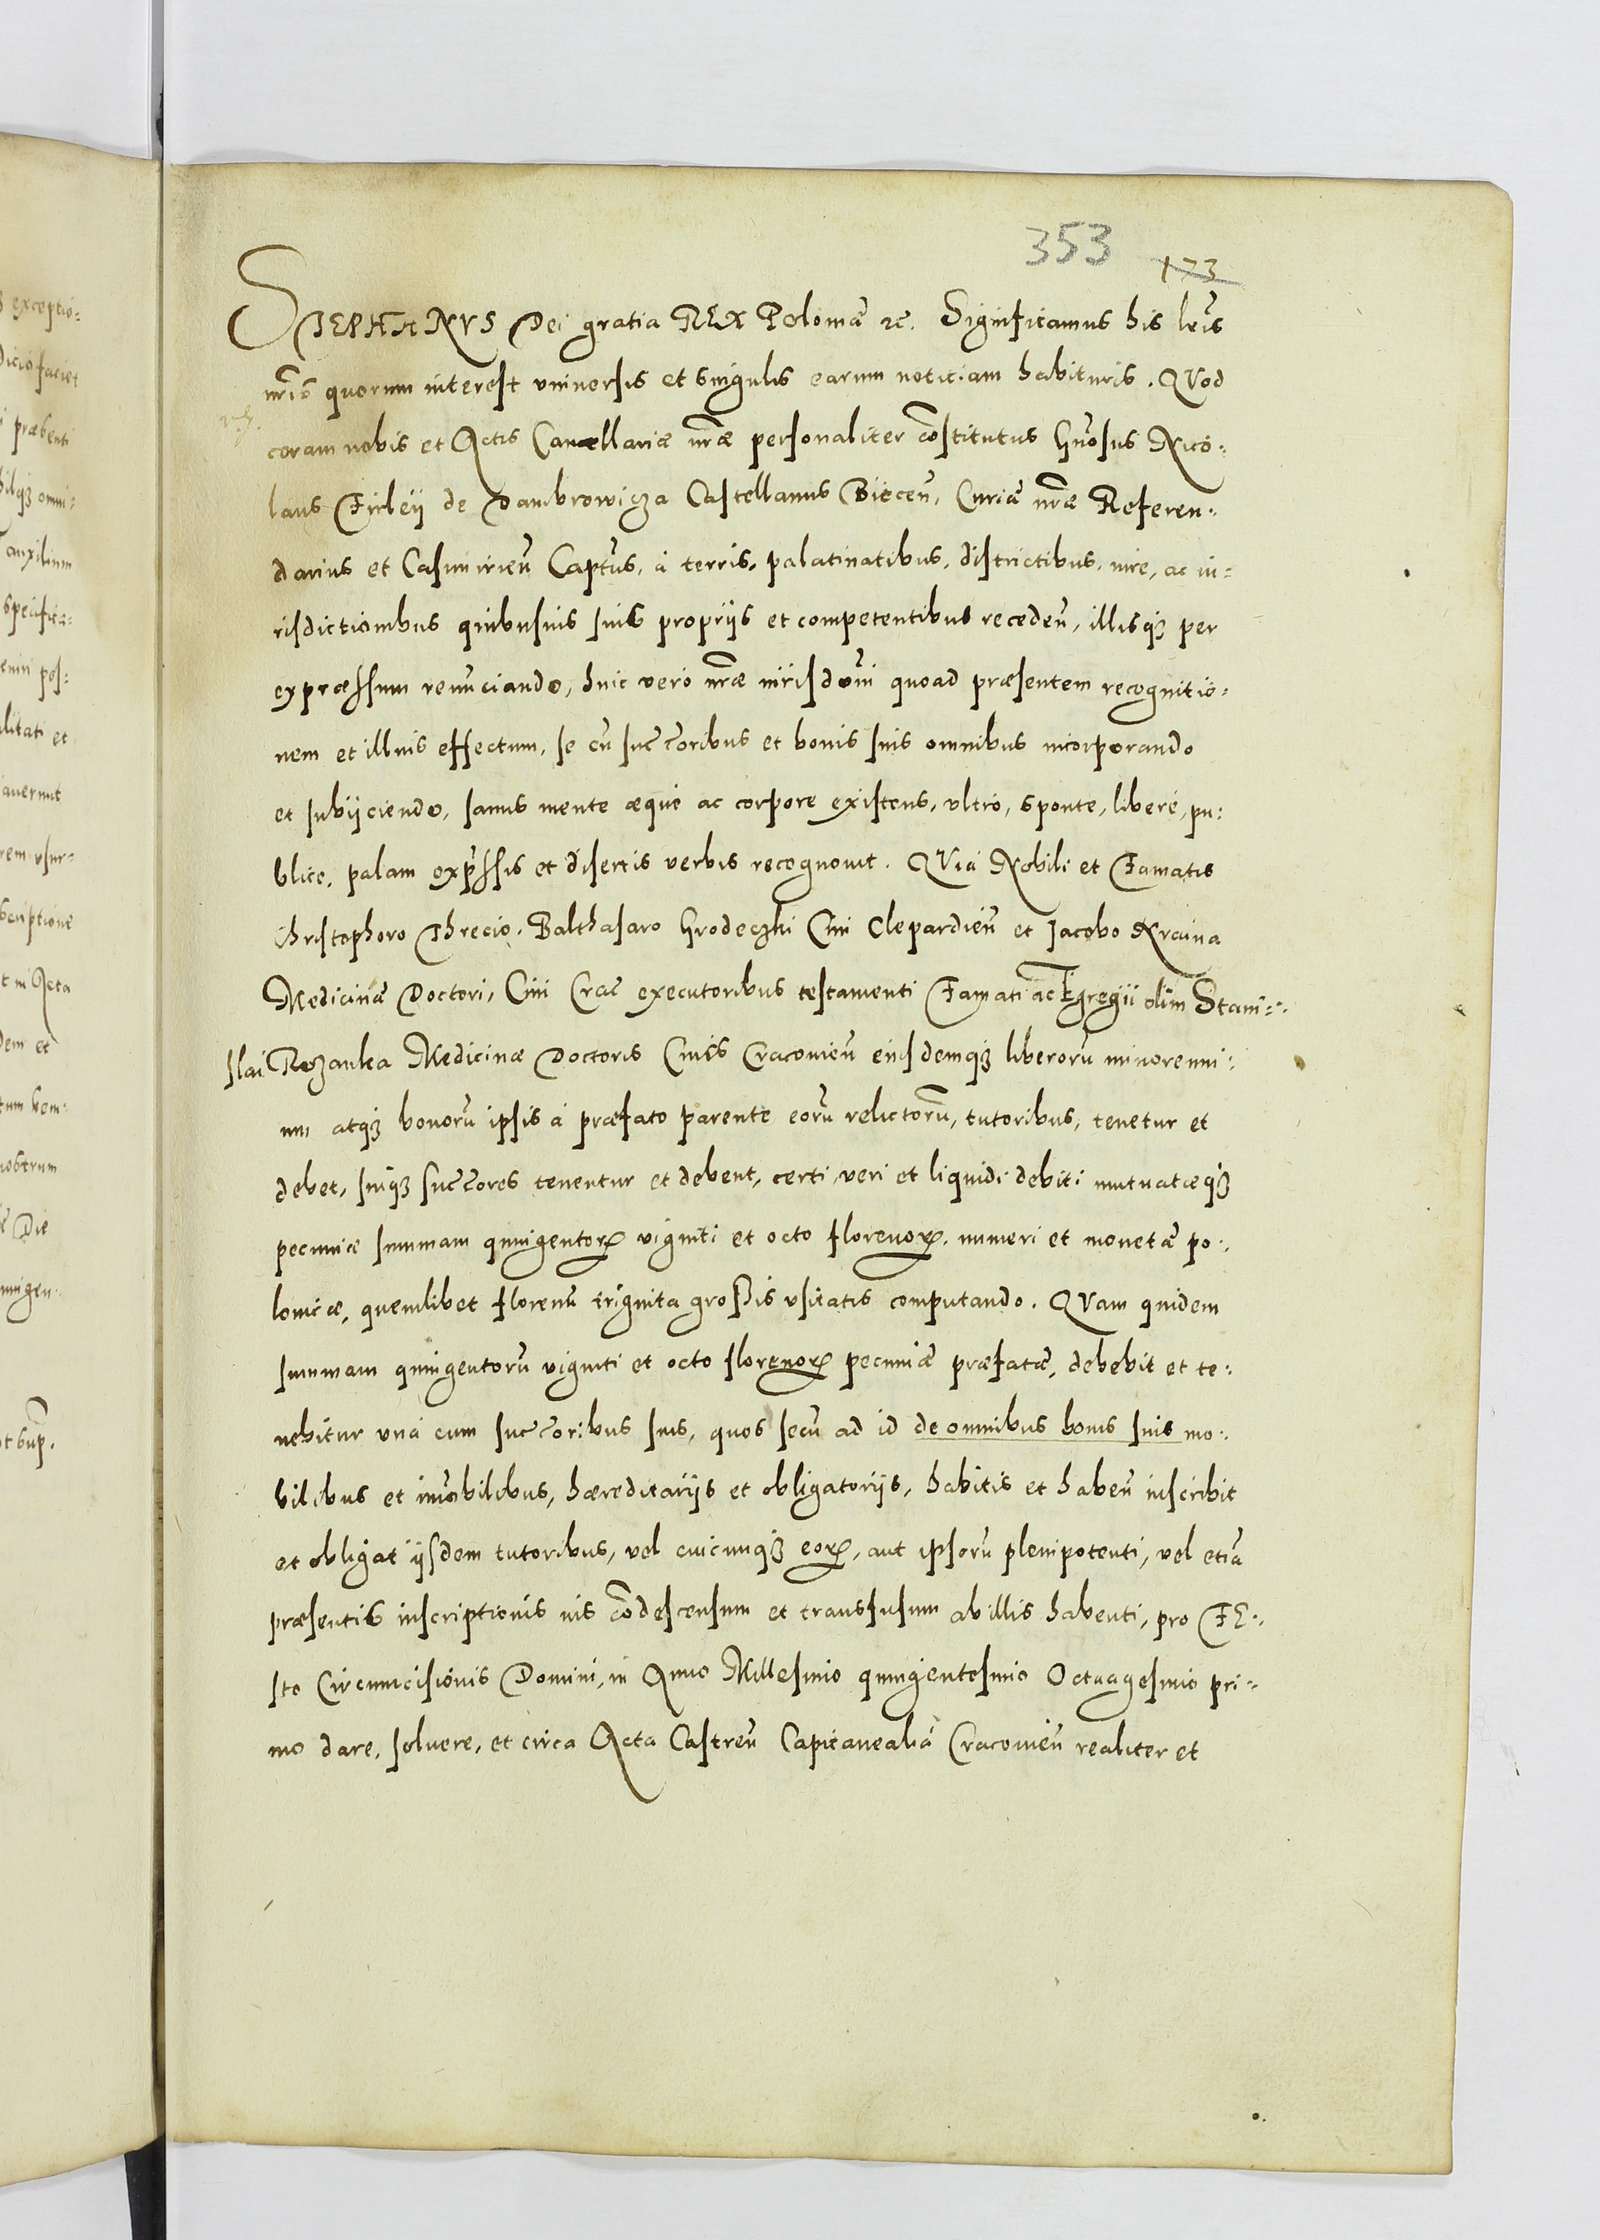 353
173
STEPHANVS Dei gratia REX Poloniæ etc. Significamus his lr̃is
nr̃is quorum interest vniuersis et singulis earum noticiam habituris. QVod
coram nobis et Actis Cancellariæ nr̃æ personaliter cõstitutus Gñosus Nico-
laus Firleÿ de Dambrowicza Castellanus Biecceñ, Curiæ nr̃æ Referen-
darius et Casimirieñ Captũs, à terris, palatinatibus, districtibus, iure, ac iu-
risdictionibus quibusuis suis proprijs et competentibus recedeñ, illisqʒ per
expræssum renunciando, huic vero nr̃æ iurisdoñi quoad præsentem recognitio-
nem et illius effectum, se cũ succ̃oribus et bonis suis omnibus incorporando
et subijciendo, sanus mente æquè ac corpore existens, vltrò, sponte, liberè, pu-
blice, palam exp̃ssis et disertis verbis recognouit. QVia Nobili et Famatis
Christophoro Threcio, Balthasaro Grodeczki Ciui Clepardieñ et Jacobo Kraina
Medicinæ Doctori, Ciui Crac̃ executoribus testamenti Famati ac Egregii olim Stani-
slai Rozanka Medicinæ Doctoris Ciuis Cracouieñ eiusdemqʒ liberorũ minorenni-
um atqʒ bonorũ ipsis à præfato parente eorũ relictorũ, tutoribus, tenetur et
debet, suiqʒ succ̃ores tenentur et debent, certi, veri et liquidi debiti mutuatæqʒ
pecuniæ summam quingentorꝝ viginti et octo florenorꝝ, numeri et monetæ po-
lonicæ, quemlibet florenũ triginta grossis vsitatis computando. QVam quidem
summam quingentorũ viginti et octo florenorꝝ pecuniæ præfatæ, debebit et te-
nebitur vnà cum succ̃oribus suis, quos secũ ad id de omnibus bonis suis mo-
bilibus et im̃obilibus, hæreditarijs et obligatorijs, habitis et habeñ inscribit
et obligat ijsdem tutoribus, vel cuicunqʒ eorꝝ, aut ipsorũ plenipotenti, vel etiã
præsentis inscriptionis ius cõdescensum et transfusum ab illis habenti, pro FE-
sto Circumcisionis Domini, in Anno Millesimo quingentesimo Octuagesimo pri-
mo dare, soluere, et circa Acta Castreñ Capitanealia Cracouieñ realiter et